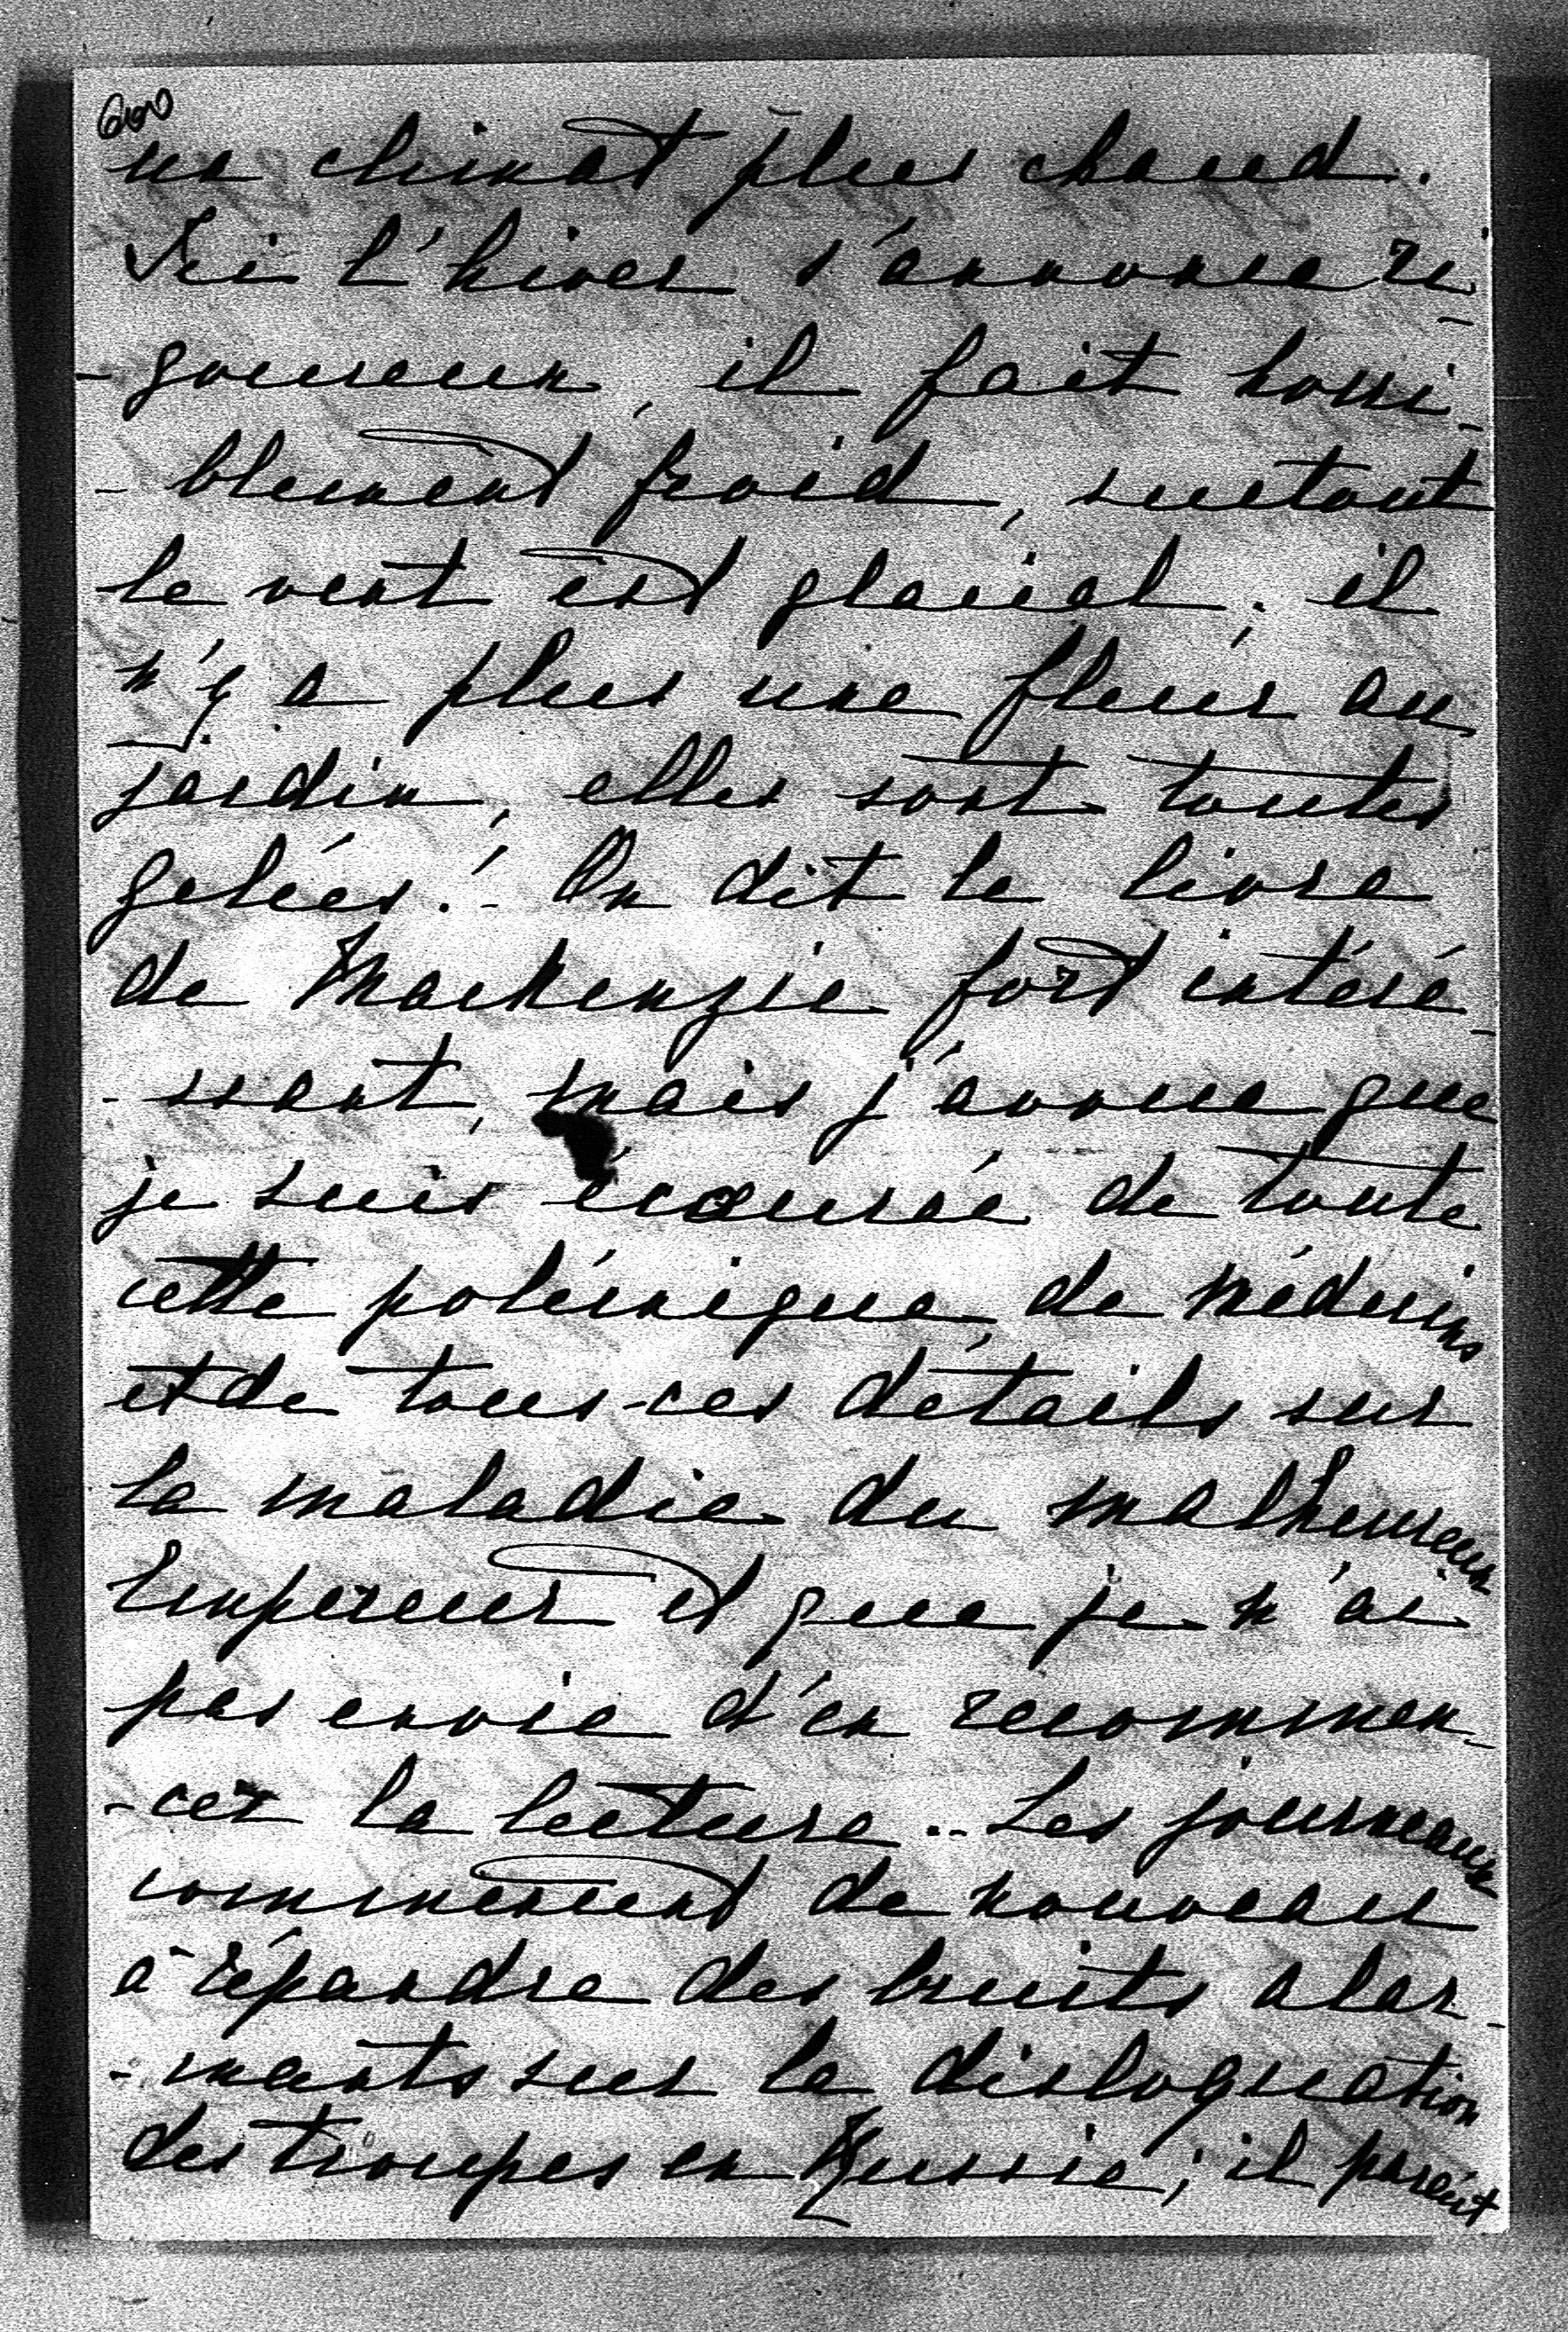 600
un climat plus chaud.
Ici l'hiver s'annonce ri-
-goureux, il fait horri-
-blement froid, surtout
le vent est glacial; il
n'y a plus une fleur au
jardin, elles sont toutes
gelées! - On dit le livre
de Mackenzie fort intéré-
-ssant, mais j'avoue que
je suis écoeurée de toute
cette polémique, de médecins
et de tous ces détails sur
la maladie du malheureux
Empereur et que je n'ai
pas envie d'en recommen-
-cer la lecture. - Les journeaux
commencent de nouveau
à répandre des bruits alar-
-mants sur la disloquation
des troupes en Russie; il parait